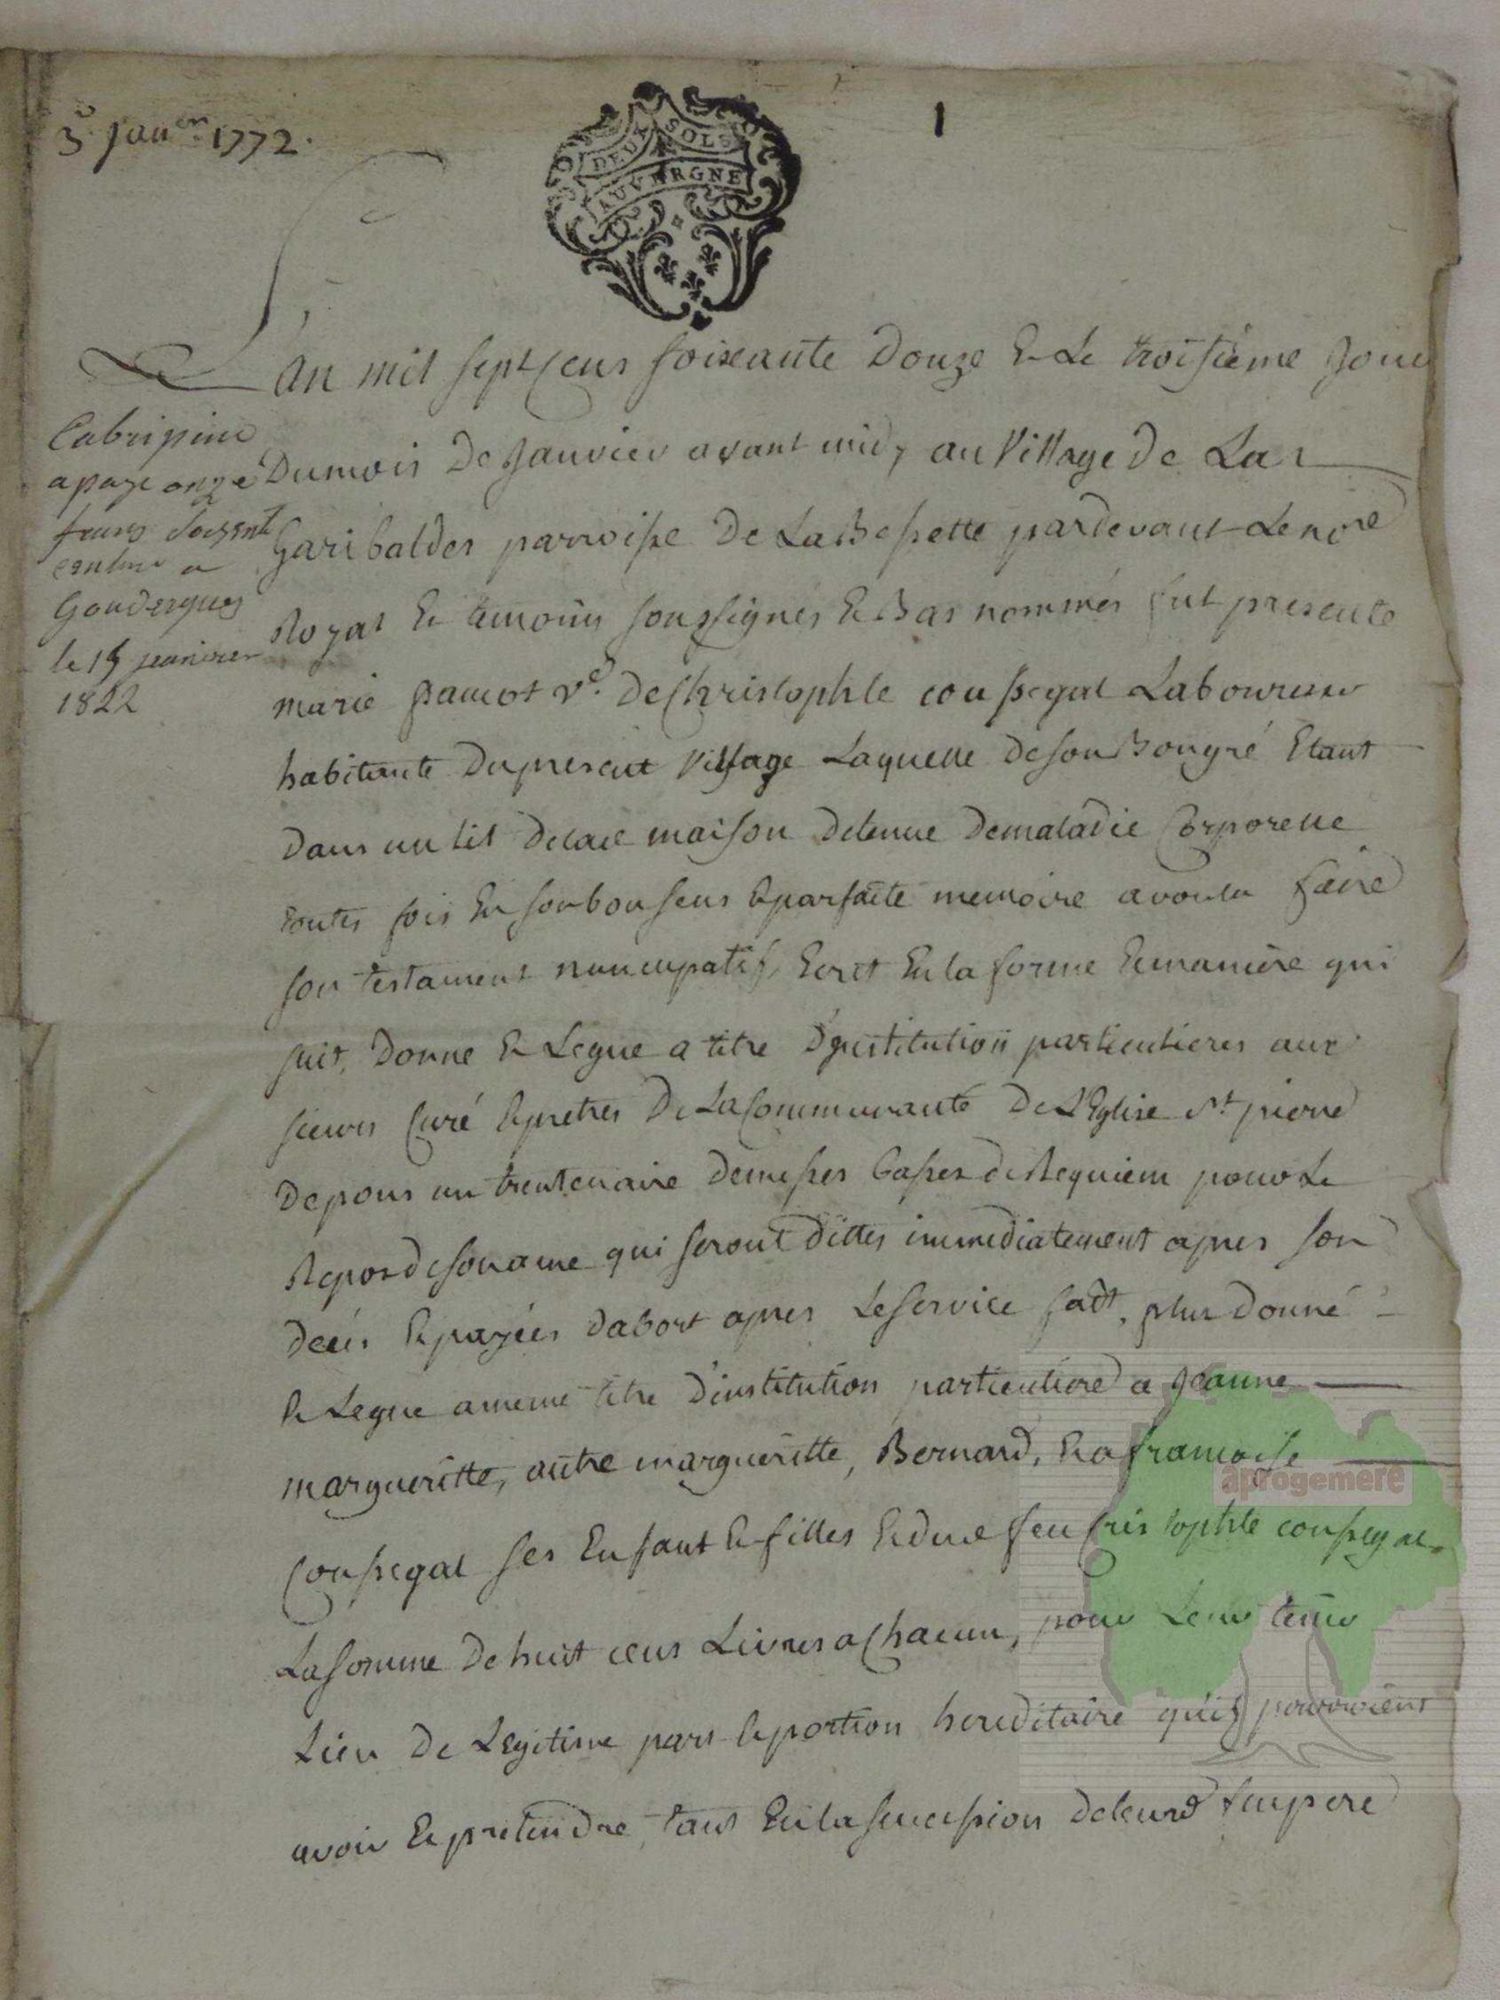 3 Janer 1772.
1
DEUX SOLS
AUVERGNE
L'an mil sept cens soixante douze & Le troisieme Jour
Dumois De Janvier avant midy au Village De Las
Garibaldes parroisse De LaBessette pardevant Le nore
Royal & temoins soussignés & Bas nommés fut presente
marie pamot Ve. De Christophle coussegal Laboureur
habitante Dupresent Village Laquelle desonBongré Etant
Dans un Lit maison detenue Demaladie Corporelle
toutes fois En sonbon sens &parfaite memoire avoulu faire
son testament nuncupatif Ecrit En la forme &maniere qui
suit, Donne & Legue a titre D'Institution particulieres aux
sieurs Curé &pretres De LaCommunauté De L'Eglise St. pierre
De pour un trentenaire Demesses basses de Requiem pour Le
Repos de soname qui seront Dittes immediatement apres son
deces &payées Dabort apres Leservice fait, plus Donné
& Legue ameme titre D'institution particuliere a Jeanne
margueritte, autre margueritte, Bernard, & a francoise
Coussegal ses Enfant & filles &dud feu Cristophle coussegal.
La somme De huit cens Livres a Chacun, pour Leur tenir
Lieu De Legitime part &portion hereditaire qu'ils pourroient
avoir &pretendre, tant En la succession deleurd feu pere
Cabrispine
a payé onze
francs soixente
centime a
Gouderques
le 15 jeanvier
1822
aprogemere